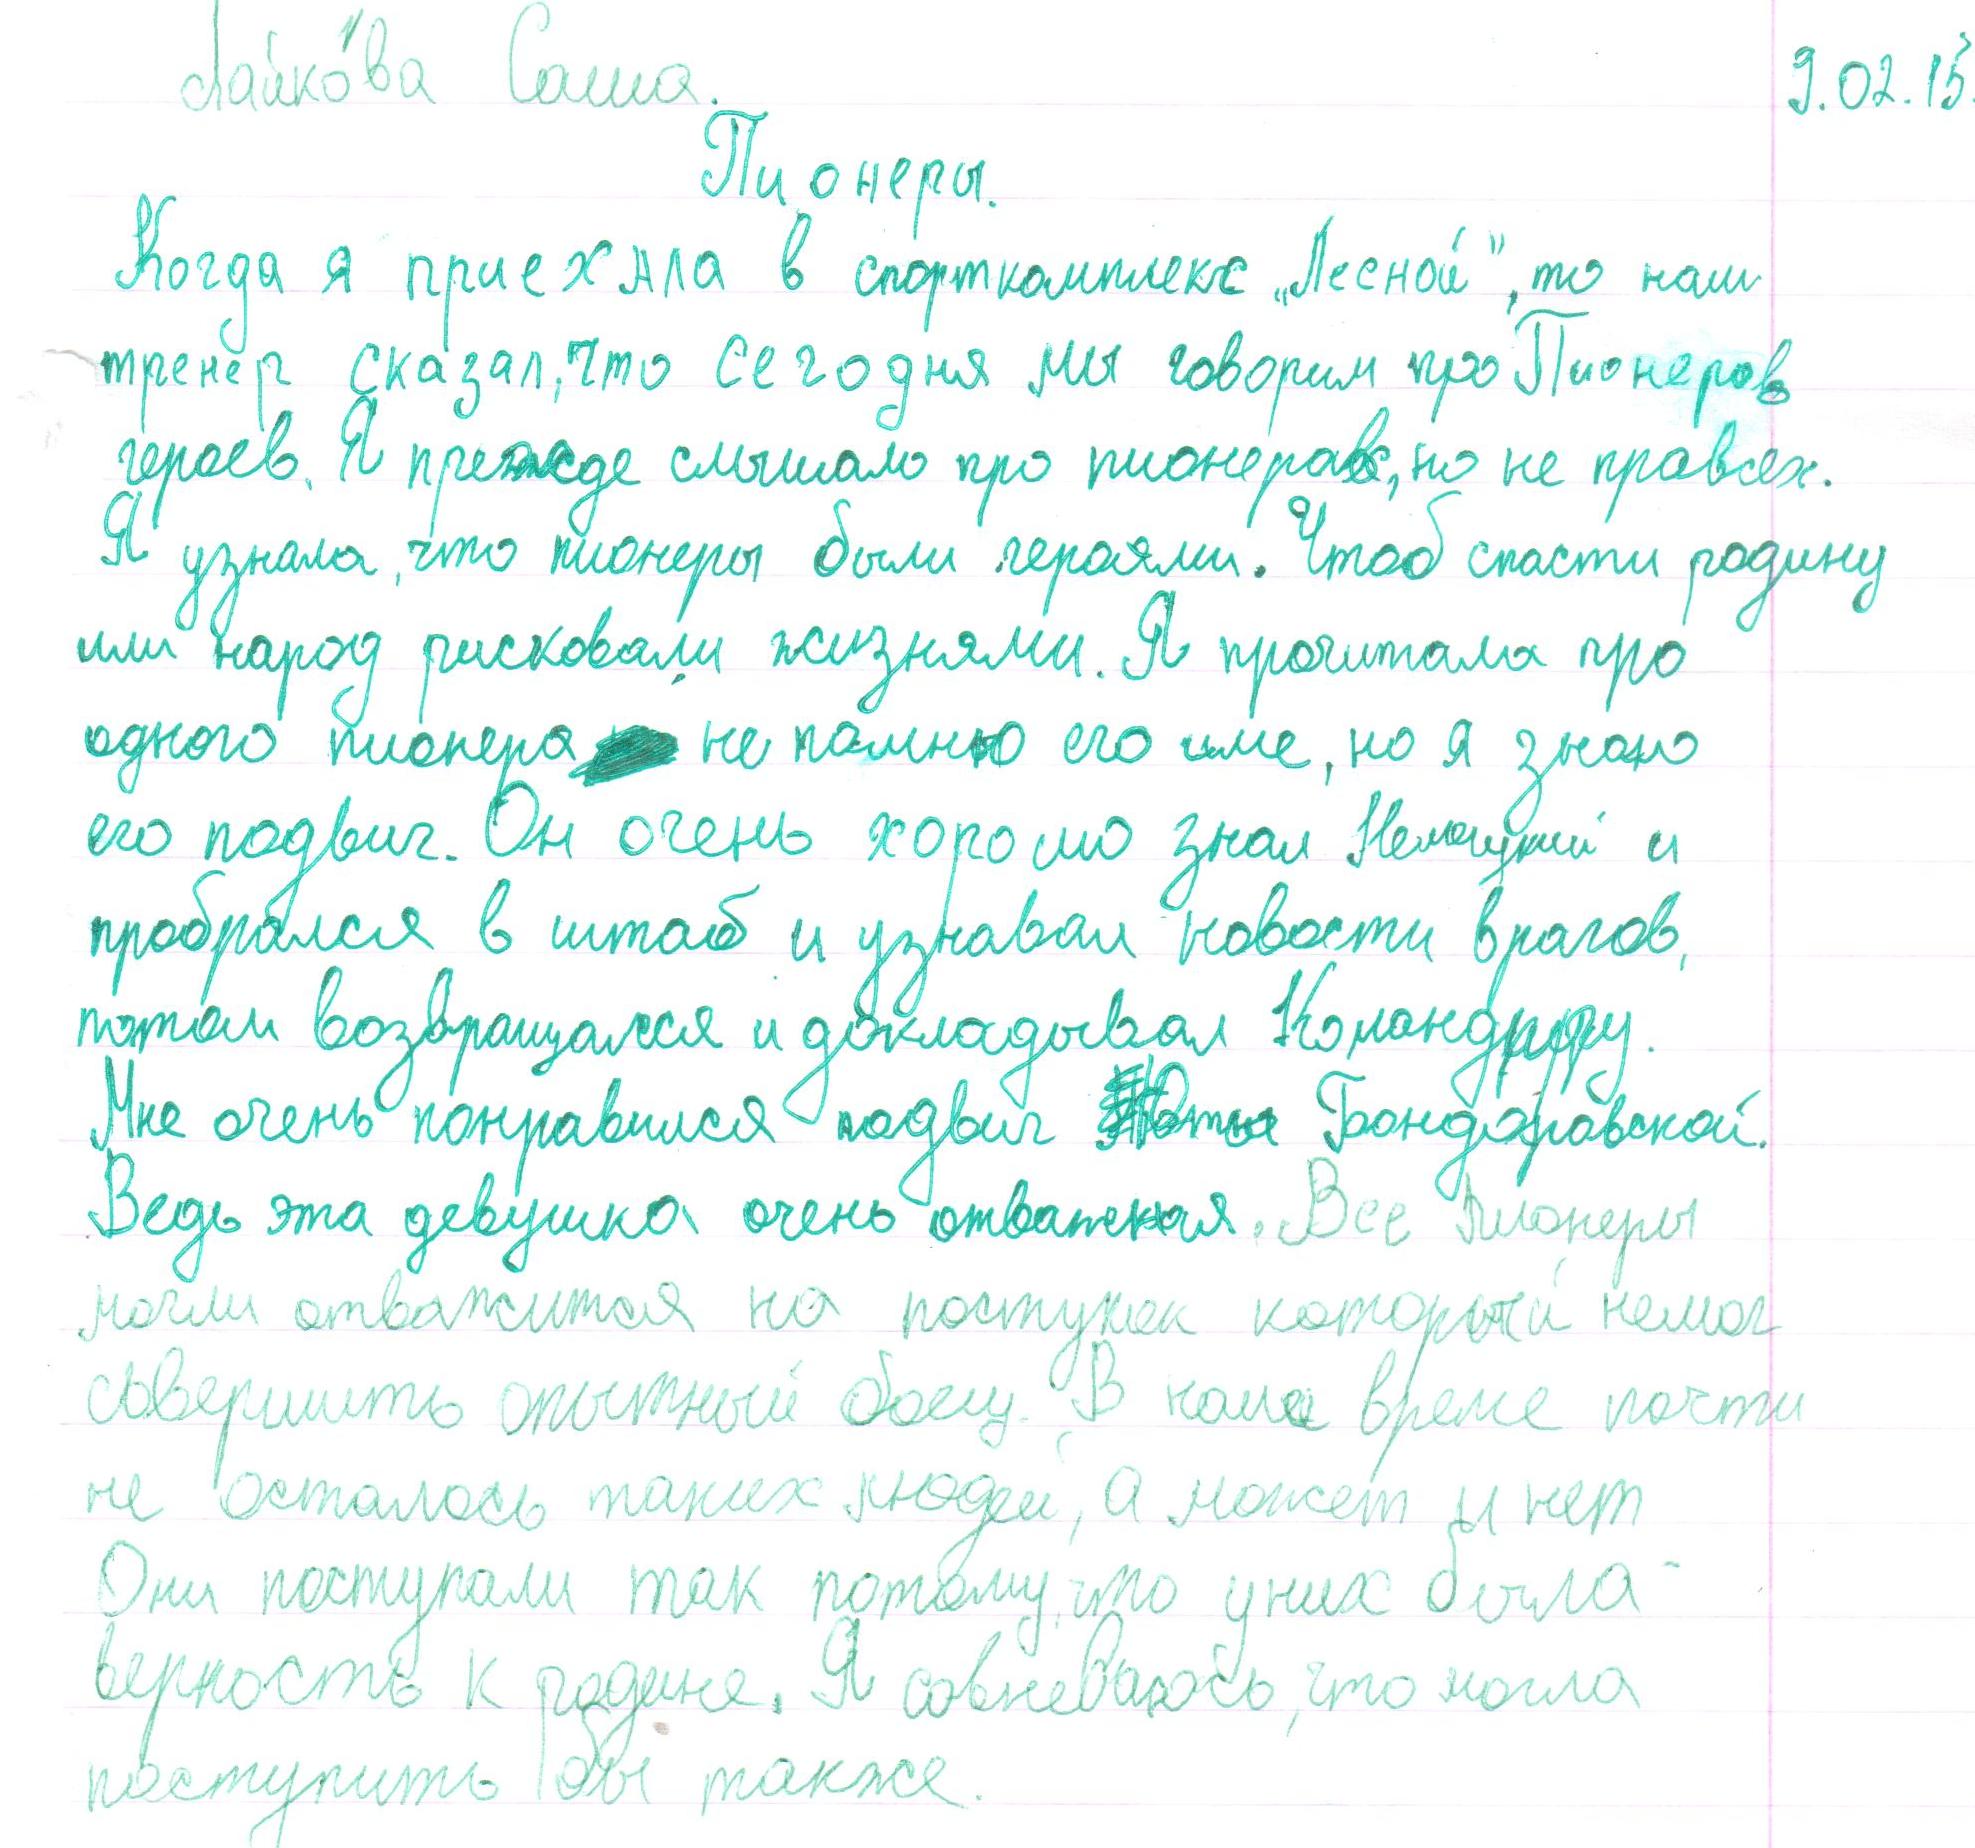 Лайкова Саша.
9.02.15.
Пионеры.
Когда я приехала в спорткомплекс „Лесной", то наш
тренер сказал, что сегодня мы говорим про Пионеров
героев. Я прежде слышало про пионеров, но не провсех.
Я узнала, что пионеры были героями. Чтоб спасти родину
или народ рисковали жизнями. Я прочитала про
одного пионера не помню его име, но я знаю
его подвиг. Он очень хорошо знал Немецкий и
пробрался в штаб и узнавал новости врагов,
потом возвращался и докладывал Командиру.
Мне очень понравился подвиг Юты Бондаровской.
Ведь эта девушка очень отважная. Все Пионеры
могли отважится на поступок который немог
совершить опытный боец. В наше време почти
не осталось таких людей, а может и нет
Они поступали так потому, что уних была
верность к родине. Я совневаюсь, что могла
поступить бы также.